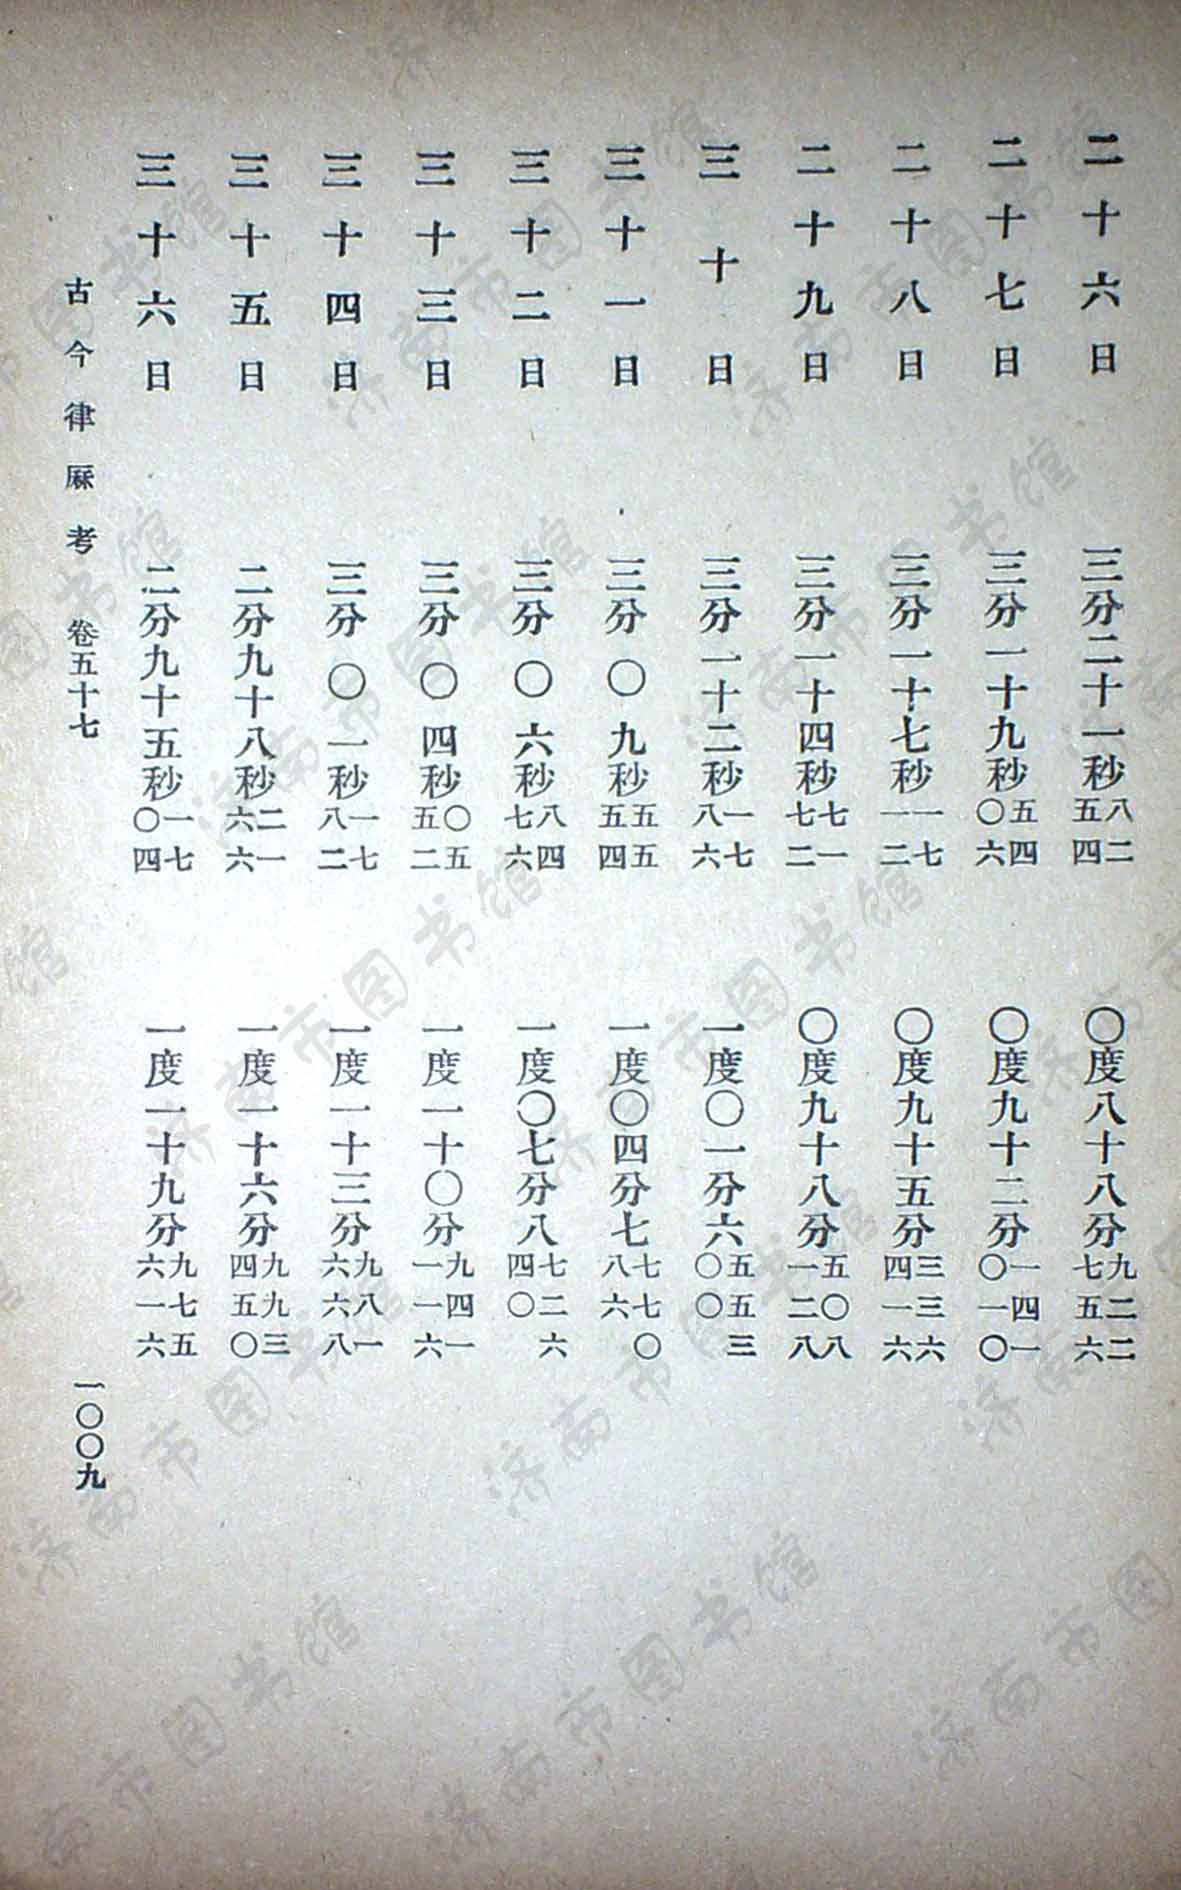 二十六日 三分二十一秒八二五四 〇度八十八分九二二七五六
二十七日 三分一十九秒五四〇六 〇度九十二分一四一〇一〇
二十八日 三分一十七秒一七一二 〇度九十五分三三六四一六
二十九日 三分一十四秒七一七二 〇度九十八分五〇八一二八
三十日 三分一十二秒一七八六 一度〇一分六五五三〇〇
三十一日 三分〇九秒五五五四 一度〇四分七七七〇八六
三十二日 三分〇六秒八四七六 一度〇七分八七二六四〇
三十三日 三分〇四秒〇五五二 一度一十〇分九四一一一六
三十四日 三分〇一秒一七八二 一度一十三分九八一六六八
三十五日 二分九十八秒二一六六 一度一十六分九九三四五〇
三十六日 二分九十五秒一七〇四 一度一十九分九七五六一六
古今律厤考 卷五十七 一〇〇九
济南市图书馆